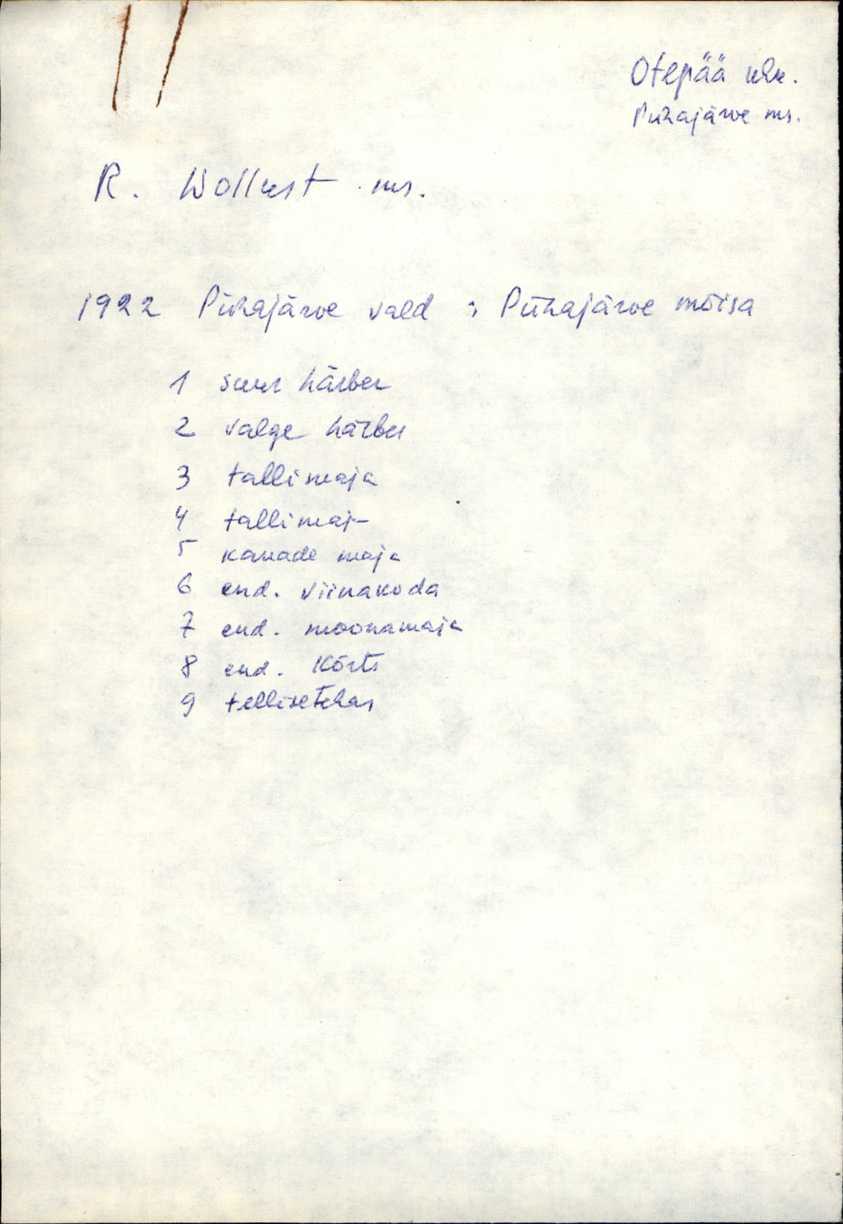 Otepää khk.
Pühajärve ms.
R. Wollust ms.
1922 Pühajärve vald : Pühajärve mõisa
1 suur härber
2 valge härber
3 tallimaja
4 tallimaj-
5 kanade maja
6 end. viinakoda
7 end. moonamaja
8 end. kõrts
9 tellisetehas